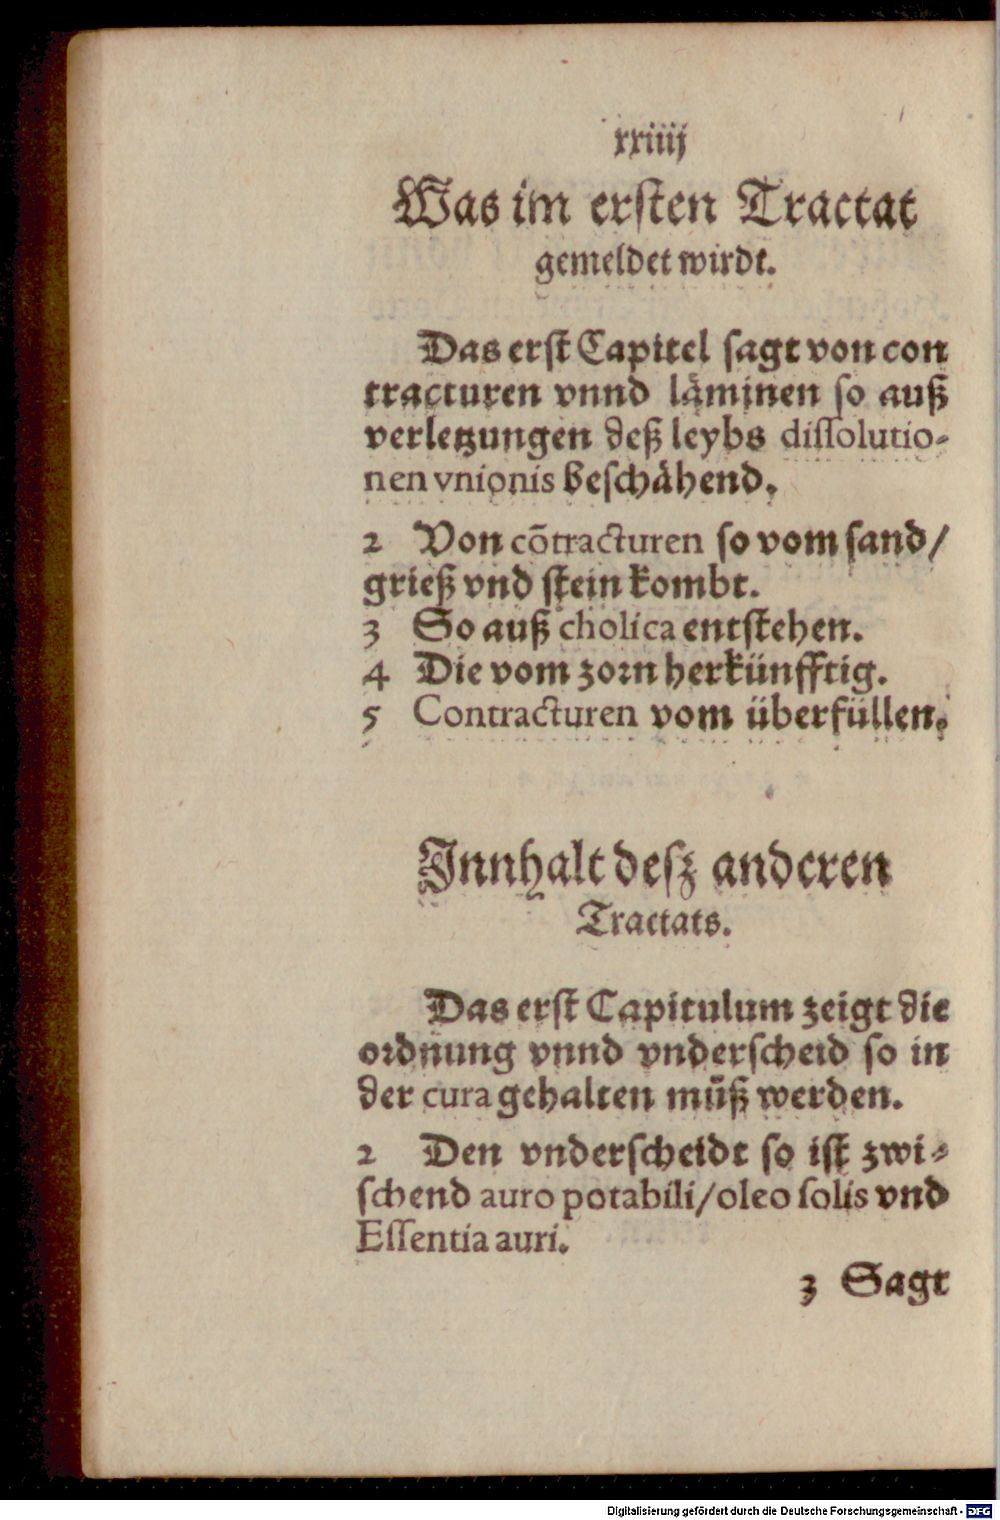 xxiiij
Was im ersten Tractat
gemeldet wirdt.
Das erst Capitel sagt von con
tracturen vnnd läminen so auß
verletzungen deß leybs dissolutio-
nen vnionis beschähend.
2 Von cōtracturen so vom sand/
grieß vnd stein kombt.
3 So auß cholica entstehen.
4 Die vom zorn herkünfftig.
5 Contracturen vom überfüllen.
Innhalt desz anderen
Tractats.
Das erst Capitulum zeigt die
ordnung vnnd vnderscheid so in
der cura gehalten müß werden.
2 Den vnderscheidt so ist zwi-
schend auro potabili/oleo solis vnd
Essentia auri.
3 Sagt
Digitalisierung gefördert durch die Deutsche Forschungsgemeinschaft - DFG